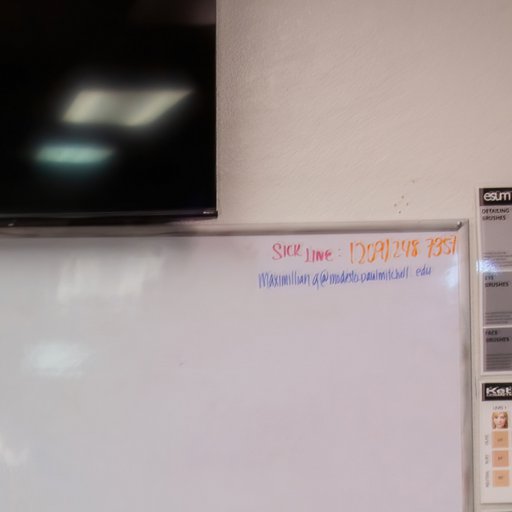 SICK LINE: (209) 248 7357
Maximillian.g@modesto.paulmitchell.edu
esum
DETAILING
BRUSHES
EYE
BRUSHES
FACE
BRUSHES